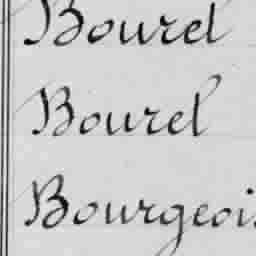 Bourel
Bourel
Bourgeois